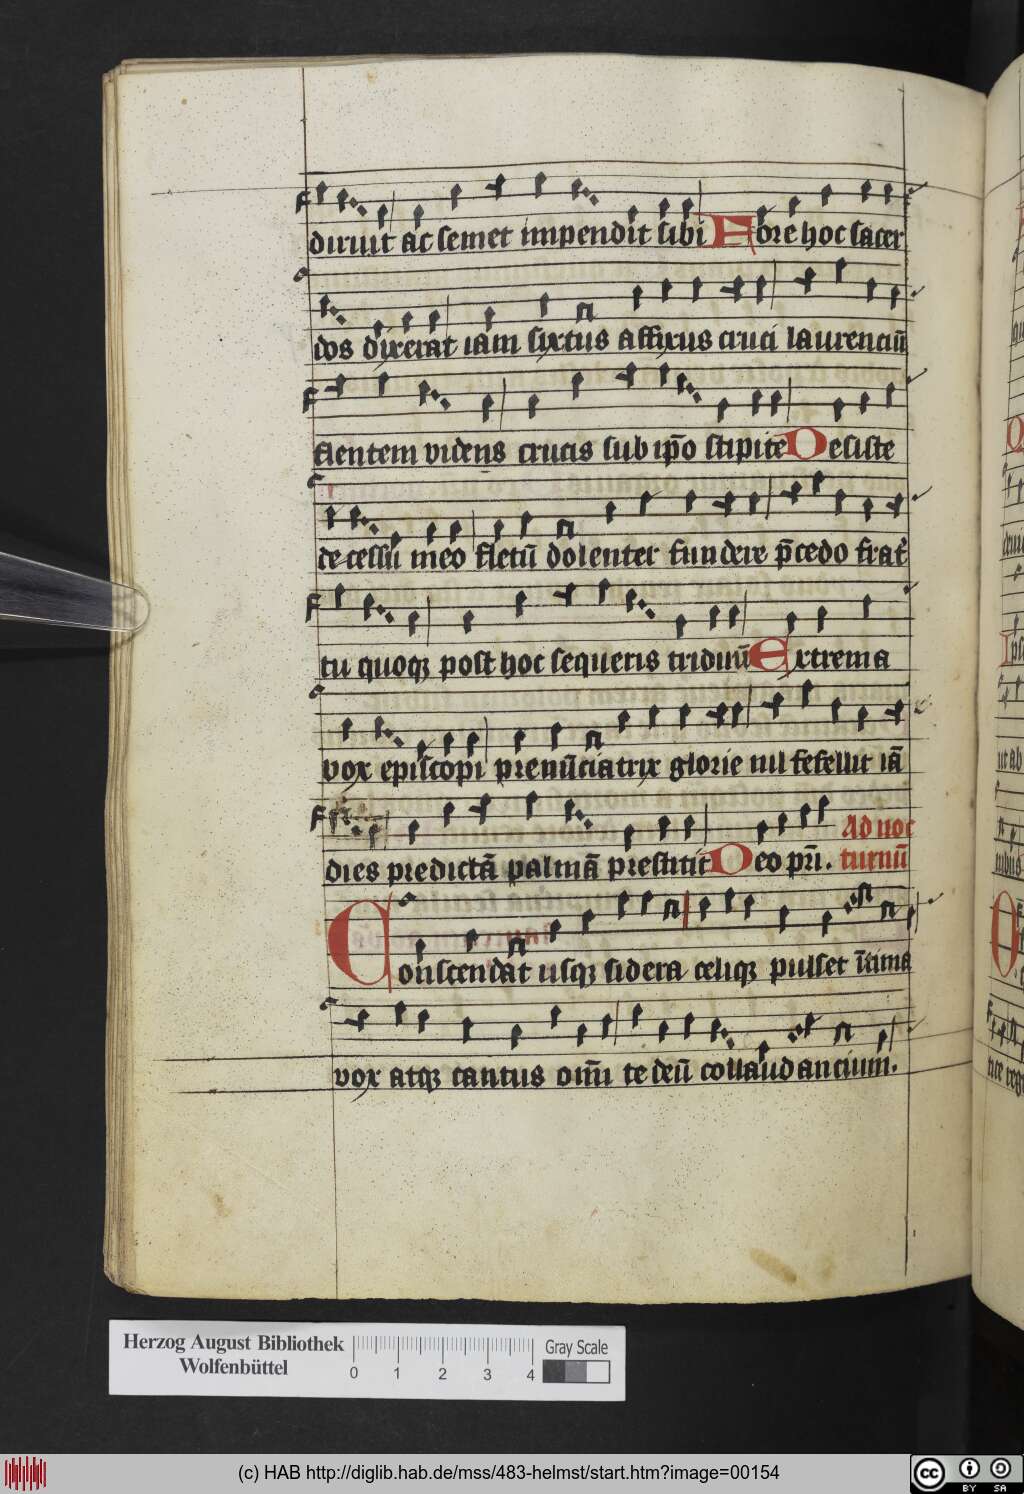 diruit ac semet impendit sibi Fore hoc sacer
dos dixerat iam sixtus affixus cruci laurenciū
flentem videns crucis sub ip̄o stipite Desiste
decessu meo fletū dolenter fundere p̄cedo frat̄
tu quoqꝫ post hoc sequeris triduū Extrema
vox episcopi prenūciatrix glorie nil fefellit iā
dies predictā palmā prestitit Deo pr̄i. Ad noc
turnū
Conscendat usqꝫ sidera celiqꝫ pulset ītima
vox atqꝫ cantus om̄i te deū collaudancium.
Herzog August Bibliothek
Wolfenbüttel
0 1 2 3 4
Gray Scale
(c) HAB http://diglib.hab.de/mss/483-helmst/start.htm?image=00154
cc BY SA